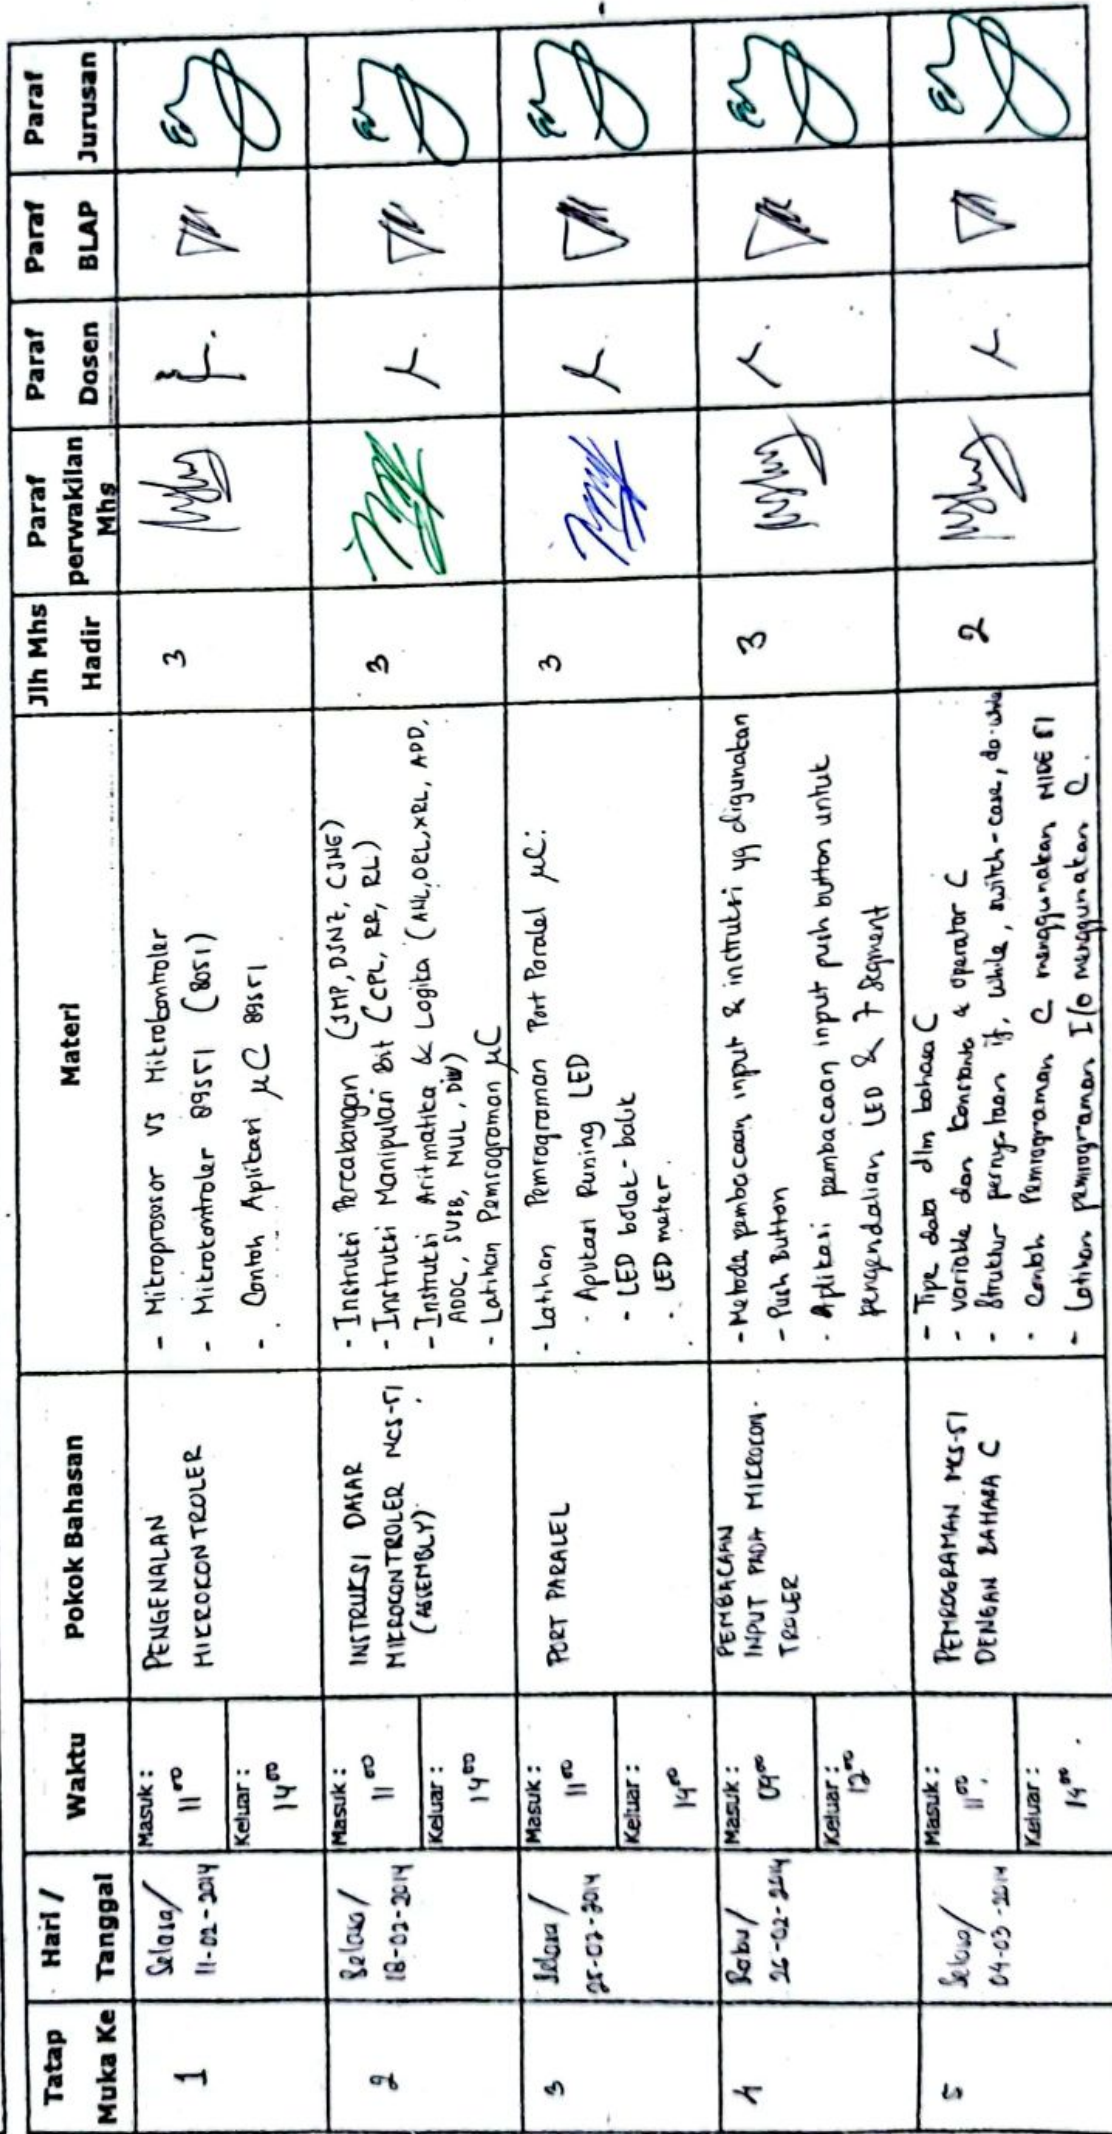 Tatap Muka Ke
Hari / Tanggal
Waktu
Pokok Bahasan
Materi
Jlh Mhs Hadir
Paraf perwakilan Mhs
Paraf Dosen
Paraf BLAP
Paraf Jurusan
1
Selasa/
11-02-2014
Masuk :
11 00
Keluar :
14 00
PENGENALAN
MIKROKONTROLER
- Mikroprosesor VS Mikrokontroler
- Mikrokontroler 89S51 (8051)
- Contoh Aplikasi μC 89S51
3
2
Selasa/
18-02-2014
Masuk :
11 00
Keluar :
14 00
INSTRUKSI DASAR
MIKROKONTROLER MCS-51
(ASSEMBLY)
- Instruksi Percabangan (JMP, DJNZ, CJNE)
- Instruksi Manipulasi Bit (CPL, RR, RL)
- Instruksi Aritmatika & Logika (ANL, ORL, XRL, ADD,
ADDC, SUBB, MUL, DIV)
- Latihan Pemrograman μC
3
3
Selasa/
25-02-2014
Masuk :
11 00
Keluar :
14 00
PORT PARALEL
- Latihan Pemrograman Port Paralel μC:
- Aplikasi Runing LED
- LED bolak-balik
- LED meter.
3
4
Rabu/
26-02-2014
Masuk :
09 00
Keluar :
12 00
PEMBACAAN
INPUT PADA MICROCON-
TROLER
- Metode pembacaan input & instruksi yg digunakan
- Push Button
- Aplikasi pembacaan input push button untuk
pengendalian LED & 7 Segment
3
5
Selasa/
04-03-2014
Masuk :
11 00
Keluar :
14 00
PEMROGRAMAN MCS-51
DENGAN BAHASA C
- Tipe data dlm bahasa C
- variable dan konstanta & operator C
- Struktur pernyataan if, while, switch-case, do-while
- Contoh Pemrograman C menggunakan MIDE 51
- Latihan pemrograman I/O menggunakan C.
2